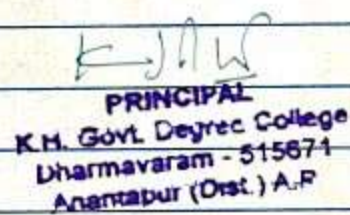 PRINCIPAL
K.H. Govt. Degree College
Dharmavaram - 515671
Anantapur (Dist.) A.P